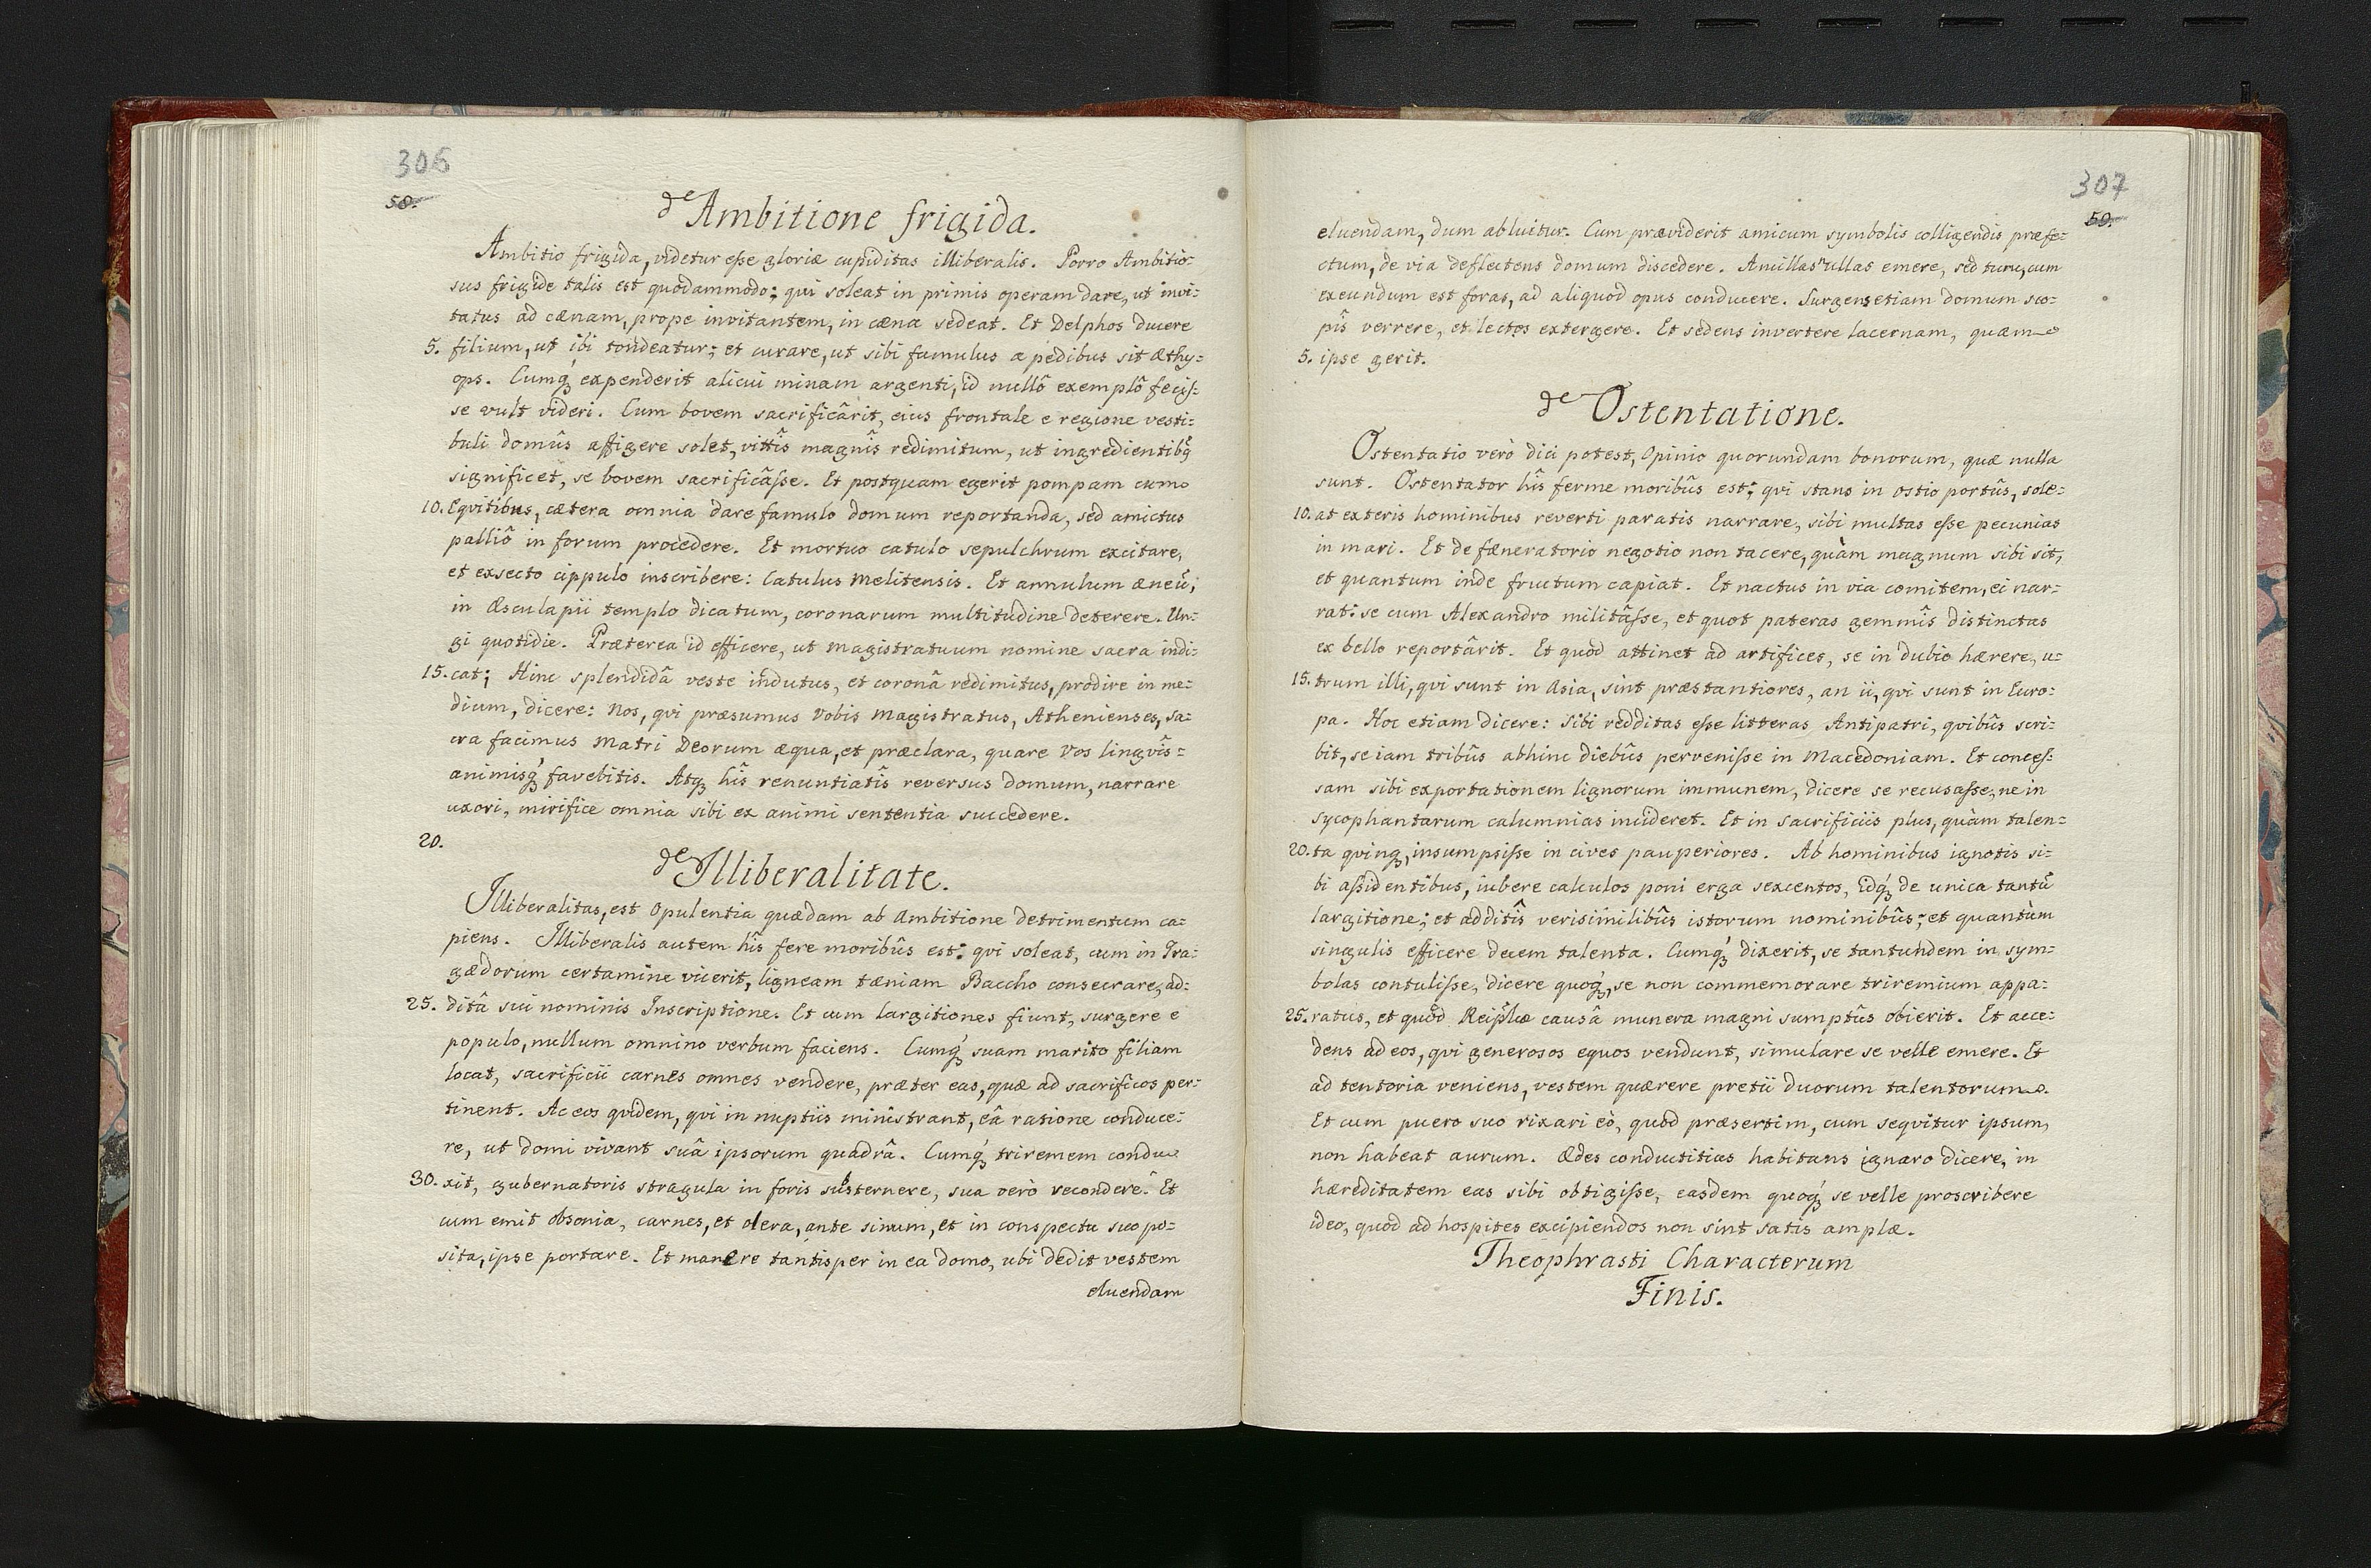 306
58.
de Ambitione frigida.
Ambitio frigida, videtur esse gloriæ cupiditas illiberalis. Porro Ambitio-
sus frigide talis est quodammodo; qui soleat in primis operam dare, ut invi-
tatus ad cænam, prope invitantem, in cæna sedeat. Et Delphos ducere
5. filium, ut ibi tondeatur; et curare, ut sibi famulus a pedibus sit Æthy-
ops. Cumq́ꝫ expenderit alicui minam argenti, id nullô exemplô fecis-
se vult videri. Cum bovem sacrificârit, eius frontale e regione vesti-
buli domûs affigere solet, vittîs magnîs redimitum, ut ingredientibꝫ
significet, se bovem sacrificâsse. Et postquam egerit pompam cum
10. Eqvitibus, cætera omnia dare famulo domum reportanda, sed amictus
palliô in forum procedere. Et mortuo catulo sepulchrum excitare,
et exsecto cippulo inscribere: Catulus Melitensis. Et annulum æneū,
in Æsculapii templo dicatum, coronarum multitudine deterere. Un-
gi quotidie. Præterea id efficere, ut Magistratuum nomine sacra indi-
15. cat; Hinc splendidâ veste indutus, et coronâ redimitus, prodire in me-
dium, dicere: Nos, qvi præsumus Vobis Magistratus, Athenienses, sa-
cra facimus Matri Deorum æqua, et præclara, quare Vos lingvîs-
animisq́ꝫ favebitis. Atqꝫ hîs renuntiatîs reversus domum, narrare
uxori, mirifice omnia sibi ex animi sententia succedere.
20.
de Illiberalitate.
Illiberalitas, est Opulentia quædam ab Ambitione detrimentum ca-
piens. Illiberalis autem hîs fere moribûs est: qvi soleat, cum in Tra-
gædorum certamine vicerit, ligneam tæniam Baccho consecrare, ad-
25. ditâ sui nominis Inscriptione. Et cum largitiones fiunt, surgere e
populo, nullum omnino verbum faciens. Cumq́ꝫ suam marito filiam
locat, sacrificii carnes omnes vendere, præter eas, quæ ad sacrificos per-
tinent. Ac eos qvidem, qvi in nuptiis ministrant, eâ ratione conduce-
re, ut domi vivant suâ ipsorum quadrâ. Cumq́ꝫ triremem condu-
30. xit, gubernatoris stragula in foris substernere, sua verò recondere. Et
cum emit obsonia, carnes, et olera, ante sinum, et in conspectu suo po-
sita, ipse portare. Et manere tantisper in ea domo, ubi dedit vestem
eluendam
307
59.
eluendam, dum abluitur. Cum præviderit amicum symbolis colligendis præfe-
ctum, de via deflectens domum discedere. Ancillas nullas emere, sed tunc, cum
exeundum est foras, ad aliquod opus conducere. Surgens etiam domum sco-
pîs verrere, et lectos extergere. Et sedens invertere lacernam, quam
5. ipse gerit.
de Ostentatione.
Ostentatio verò dici potest, Opinio quorundam bonorum, quæ nulla
sunt. Ostentator hîs ferme moribûs est; qvi stans in ostio portûs, sole-
10. at exteris hominibus reverti paratis narrare, sibi multas esse pecunias
in mari. Et de fæneratorio negotio non tacere, quàm magnum sibi sit,
et quantum inde fructum capiat. Et nactus in via comitem, ei nar-
rat: se cum Alexandro militâsse, et quot pateras gemmîs distinctas
ex bello reportârit. Et quod attinet ad artifices, se in dubio hærere, u-
15. trum illi, qvi sunt in Asia, sint præstantiores, an ii, qvi sunt in Euro-
pa. Hoc etiam dicere: Sibi redditas esse litteras Antipatri, qvibûs scri-
bit, se iam tribûs abhinc diebûs pervenisse in Macedoniam. Et conces-
sam sibi exportationem lignorum immunem, dicere se recusasse, ne in
sycophantarum calumnias incideret. Et in sacrificiis plus, quàm talen-
20. ta qvinqꝫ, insumpsisse in cives pauperiores. Ab hominibus ignotis si-
bi assidentibus, iubere calculos poni erga sexcentos, idq́ꝫ de unica tantū
largitione; et additîs verisimilibûs istorum nominibûs; et quantùm
singulis efficere decem talenta. Cumq́ꝫ dixerit, se tantundem in sym-
bolas contulisse, dicere quoq́ꝫ, se non commemorare triremium appa-
25. ratus, et quòd Reipłæ causâ munera magni sumptûs obierit. Et acce-
dens ad eos, qvi generosos equos vendunt, simulare se velle emere. Et
ad tentoria veniens, vestem quærere pretii duorum talentorum.
Et cum puero suo rixari eò, quòd præsertim, cum seqvitur ipsum,
non habeat aurum. Ædes conductitias habitans ignaro dicere, in
hæreditatem eas sibi obtigisse, easdem quoq́ꝫ se velle proscribere
ideo, quòd ad hospites excipiendos non sint satis amplæ.
Theophrasti Characterum
Finis.